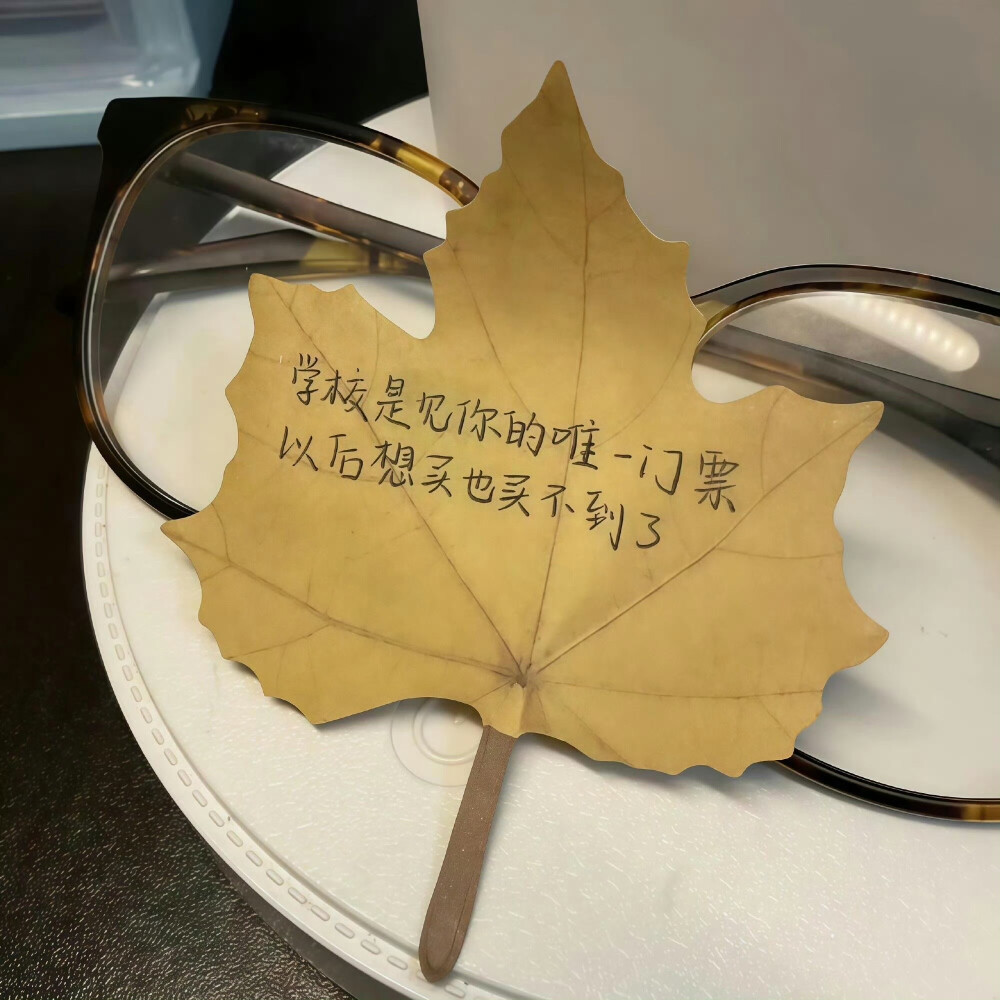 学校是见你的唯一门票
以后想买也买不到了